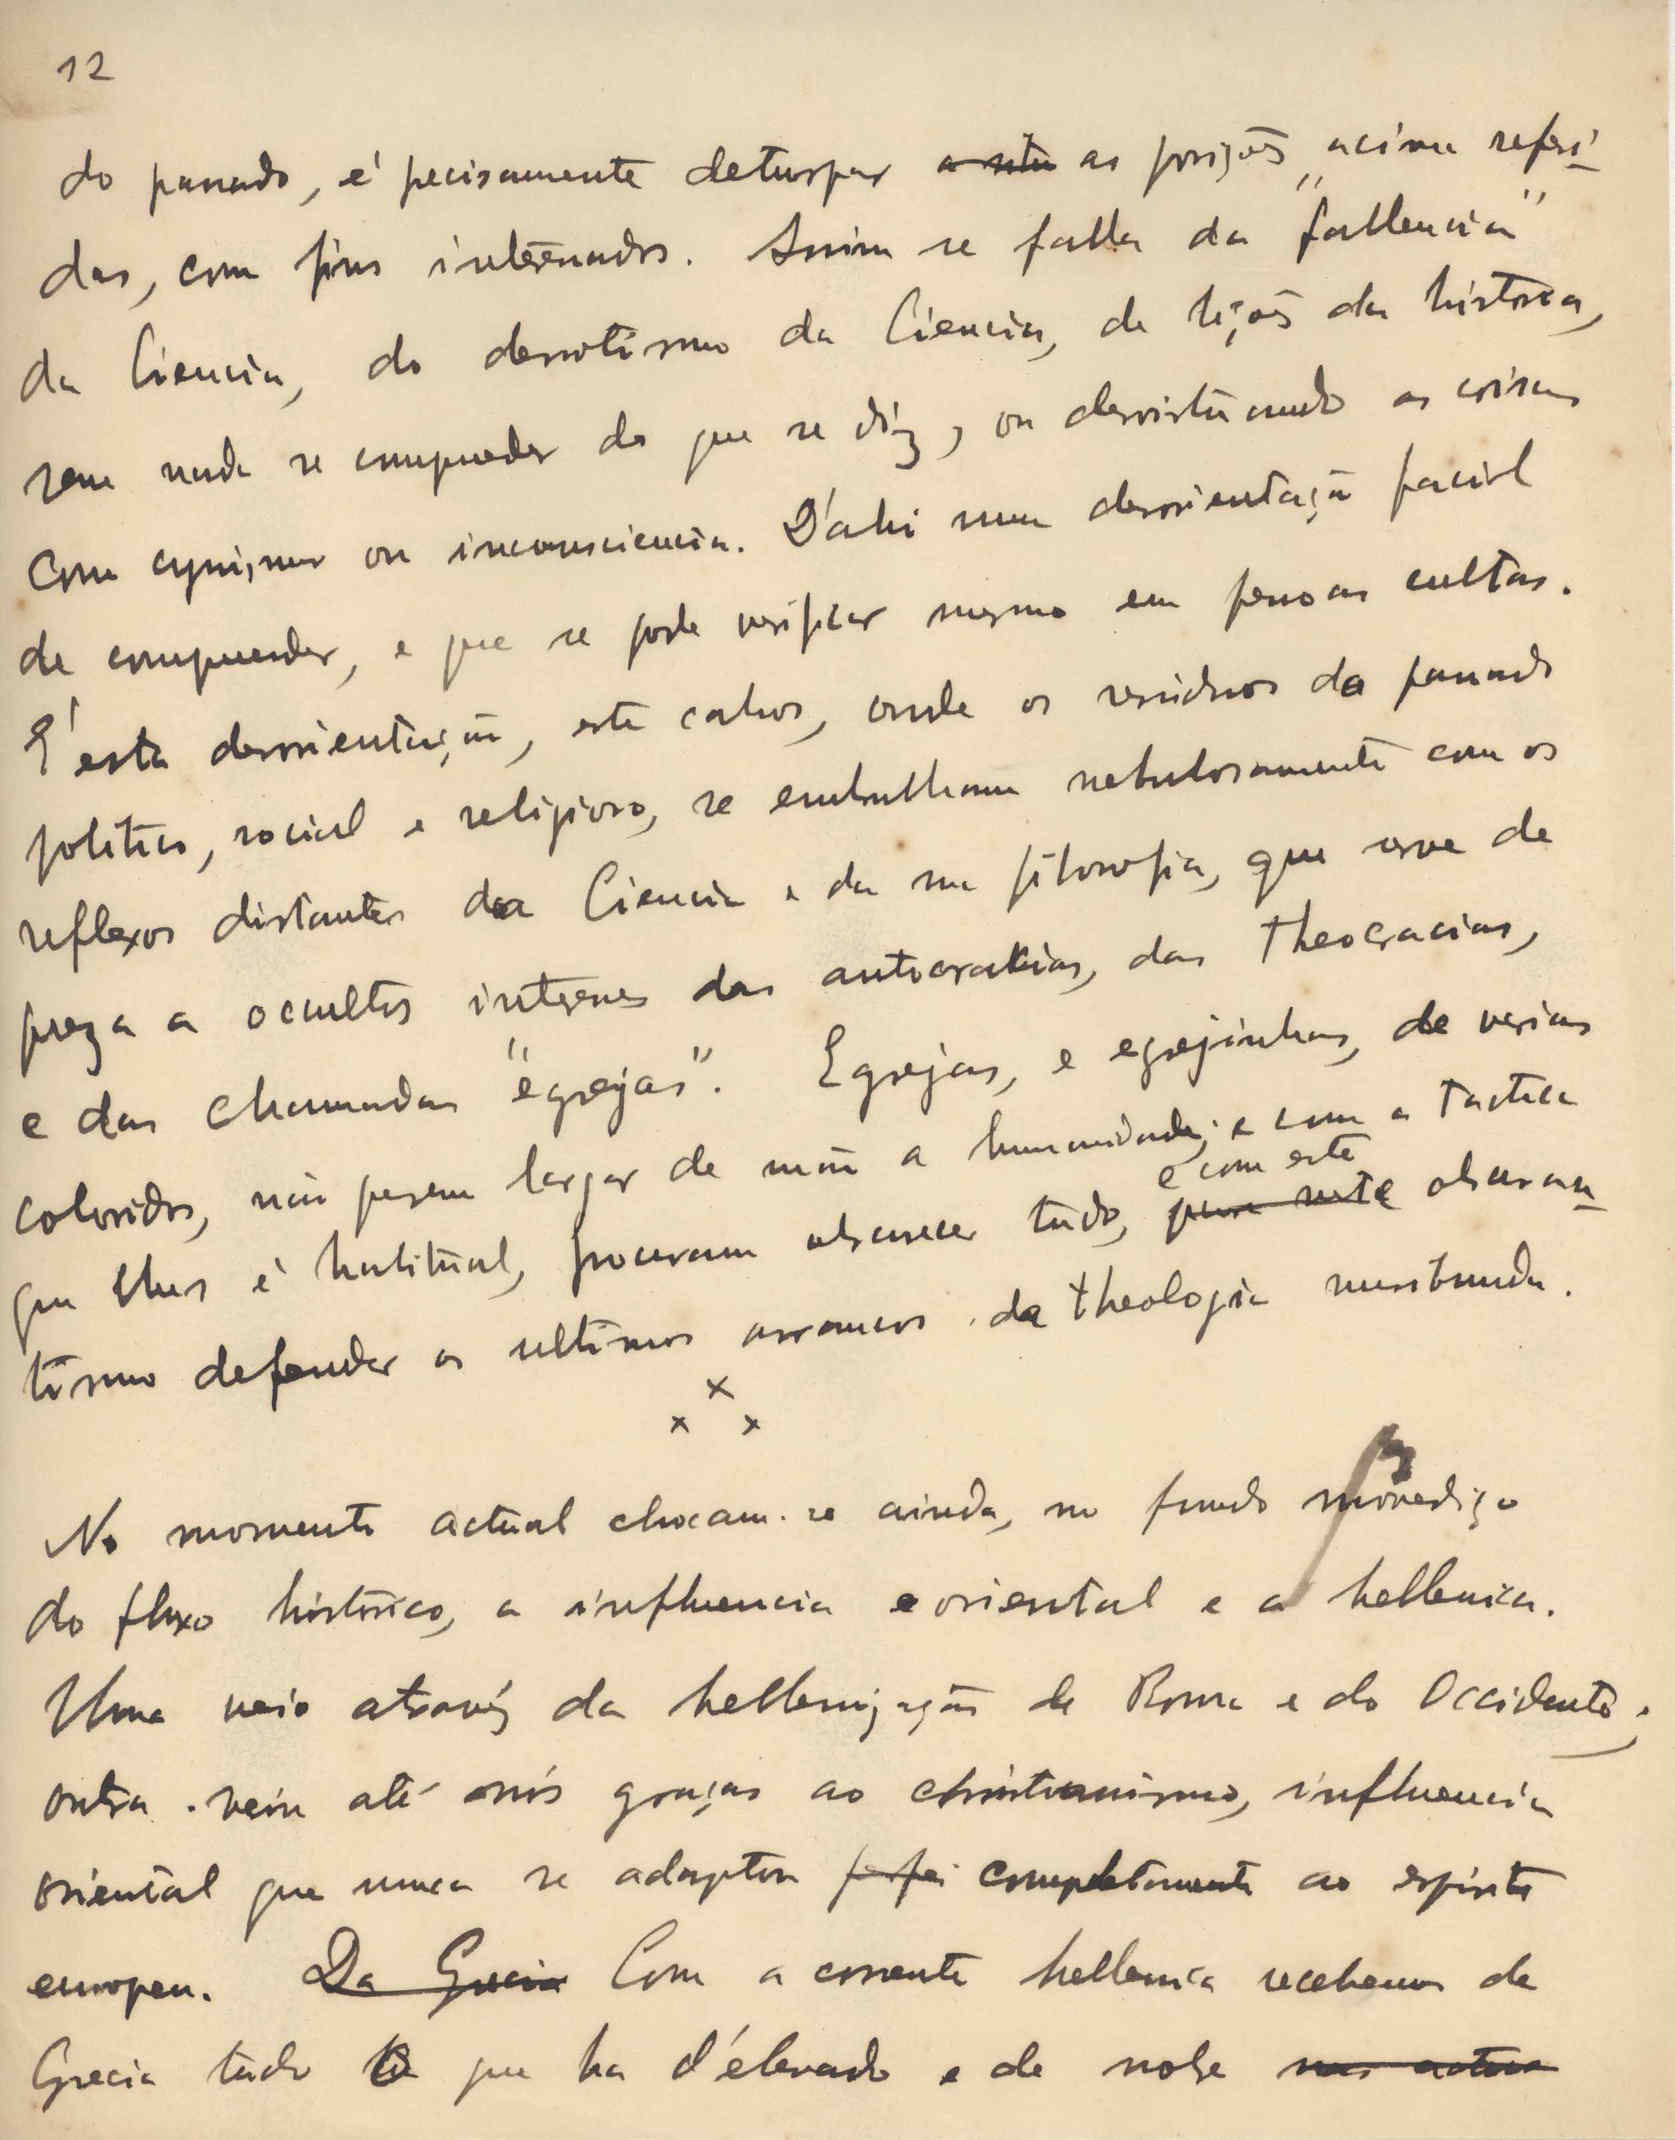 12
do passado, é precisamente deturpar as posições acima referi-
das, com fins interessados. Assim se falla da "fallencia"
da Ciencia, do derrotismo da Ciencia, de lições da historia,
sem nada se comprehender do que se diz, ou desvirtuando as coisas
com cynismo ou inconsciencia. D'ahi uma desorientação facil
de comprehender, e que se pode verificar mesmo em pessoas cultas.
E' esta desorientação, este cahos, onde os residuos do passado
politico, social e religioso, se embrulham nebulosamente com os
reflexos distantes da Ciencia e da sua filosofia, que serve de
preza a occultos interesses das autocracias, das theocracias,
e das chamadas "egrejas". Egrejas, e egrejinhas, de varios
coloridos, não querem largar de mão a humanidade; e com a tactica
que lhes é habitual, procuram obscurecer tudo, e com este obscuran-
tismo defender os ultimos arrancos da theologia moribunda.
x x x
No momento actual chocam-se ainda, no fundo movediço
do fluxo historico, a influencia oriental e a hellenica.
Uma veio através da hellenização de Roma e do Occidente;
outra veiu até nós graças ao christianismo, influencia
oriental que nunca se adaptou completamente ao espirito
europeu. Da Grecia Com a corrente hellenica recebemos da
Grecia tudo o que ha d'élevado e de nobre